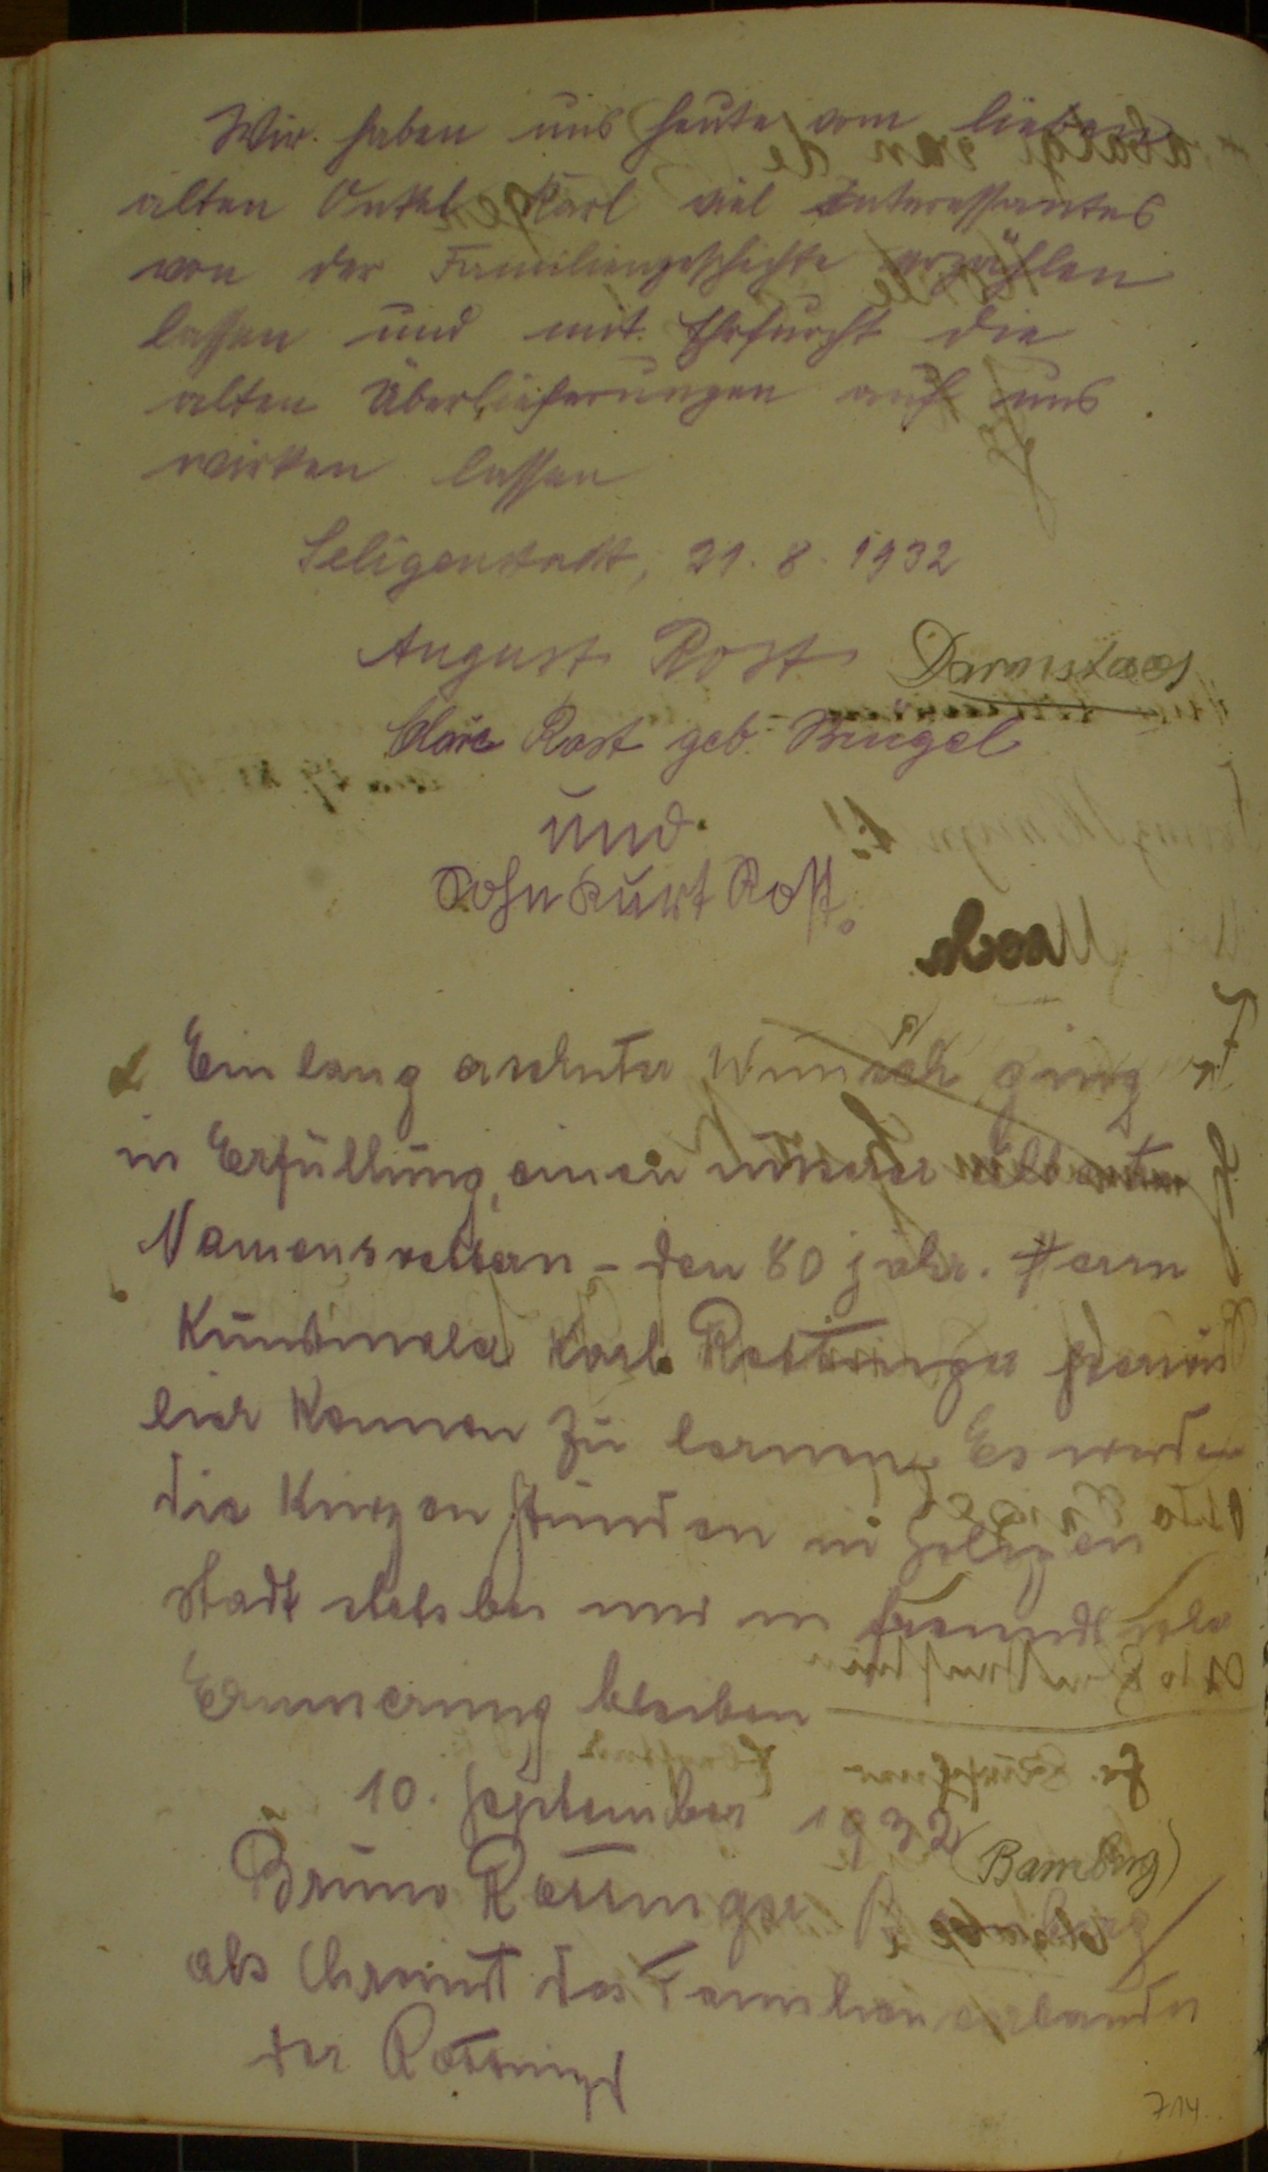 Wir haben uns heute vom lieben
alten Onkel Karl viel Interessantes
von der Familiengeschichte erzählen
lassen und mit Ehrfurcht die
alten Überlieferungen auf uns
wirken lassen
Seligenstadt, 21. 8. 1932
August Rost Darmstadt
Rost geb.
und
Sohn Kurt Rost.
Ein lang ersehnter Wunsch ging
in Erfüllung, einen unserer
Namensvettern - den 80 jähr. Herrn
Kunstmaler Karl Rettinger persön
lich kennen zu lernen. Es werden
die kurzen Stunden in Seligen
stadt stets bei mir in
Erinnerung bleiben
10. September 1932
Bruno Röttinger (Bamberg)
als des Familienverbandes
der
714